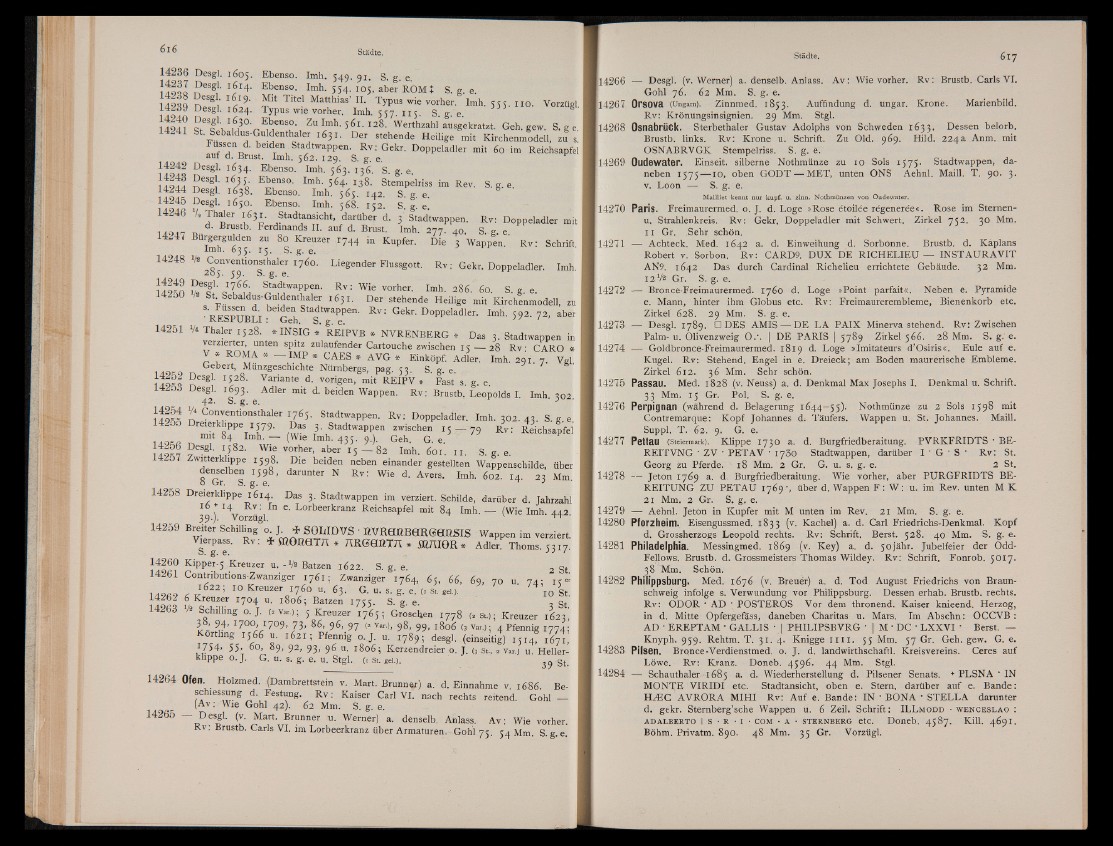 616
Städte.
14236 Desgl. 1605. Ebenso. Imh. 549. 91. S. g. e.
14237 Desgl. 1614. Ebenso. Imh. 554. 105, aber ROM S. g. e.
14238 Desgl. 1619. Mit Titel Matthias' II. Typus wie vorher. Imh. 555. 110. Vorzügl.
14239 Desgl. 1624. Typus wie vorher. Imh. 557. 115. S. g. e.
14240 Desgl. 1630. Ebenso. Zu Imh. 561. 128. Werthzahl ausgekratzt. Geh. gew. S. g e.
14241 St. Sebaldus-Guldenthaler 1631. Der stehende Heilige mit Kirchenmodell, zu s.
Füssen d. beiden Stadtwappen. Rv: Gekr. Doppeladler mit 60 im Reichsapfel
auf d. Brust. Imh. 562. 129. S. g. e.
14242 Desgl. 1634. Ebenso. Imh. 563. 136. S. g. e.
14243 Desgl. 1635. Ebenso. Imh. 564. 138. Stempelriss im Rev. S. g. e.
14244 Desgl. 1638. Ebenso. Imh. 565. 142. S. g. e.
14245 Desgl. 1650. Ebenso. Imh. 568. 152. S. g. e.
14246 Thaler 1631. Stadtansicht, darüber d. 3 Stadtwappen. Rv: Doppeladler mit
d. Brustb. Ferdinands II. auf d. Brust. Imh. 277. 40. S. g. e.
14247 Bürgergulden zu 80 Kreuzer 1744 in Kupfer. Die 3 Wappen. Rv: Schrift.
Imh. 635. 15. S. g. e.
14248 1/2 Conventionsthaler 1760. Liegender Flussgott. Rv: Gekr. Doppeladler. Imh.
285. 59. S. g. e.
14249 Desgl. 1766. Stadtwappen. Rv: Wie vorher. Imh. 286. 60. S. g. e.
14250 1/2 St. Sebaldus-Guldenthaler 1631. Der stehende Heilige mit Kirchenmodell, zu
s. Füssen d. beiden Stadtwappen. Rv: Gekr. Doppeladler. Imh. 592. 72, aber
· RESPUBLI : Geh. S. g. e.
14251 1/4 Thaler 1528. * INSIG * REIPVB * NVRENBERG * Das 3. Stadtwappen in
verzierter, unten spitz zulaufender Cartouche zwischen 15 — 28 Rv: CARO *
V * ROMA * — IMP * CAES * AVG * Einköpf. Adler. Imh. 291. 7. Vgl.
Gebert, Münzgeschichte Nürnbergs, pag. 53. S. g. e.
14252 Desgl. 1528. Variante d. vorigen, mit REIPV * Fast s. g. e.
14253 Desgl. 1693. Adler mit d. beiden Wappen. Rv: Brustb. Leopolds I. Imh. 302.
42. S. g. e.
14254 1/4 Conventionsthaler 1765. Stadtwappen. Rv: Doppeladler. Imh. 302. 43. S. g. e.
14255 Dreierklippe 1579. Das 3. Stadtwappen zwischen 15 — 79 Rv: Reichsapfel
mit 84 Imh. — (Wie Imh. 435. 9.). Geh. G. e.
14256 Desgl. 1582. Wie vorher, aber 15 — 82 Imh. 601. 11. S. g. e.
14257 Zwitterklippe 1598. Die beiden neben einander gestellten Wappenschilde, über
denselben 1598, darunter N Rv: Wie d. Avers. Imh. 602. 14. 23 Mm.
8 Gr. S. g. e.
14258 Dreierklippe 1614. Das 3. Stadtwappen im verziert. Schilde, darüber d. Jahrzahl
16 + 14 Rv: In e. Lorbeerkranz Reichsapfel mit 84 Imh. — (Wie Imh. 442.
39.). Vorzügl.
14259 Breiter Schilling o. J. ✠ SOLIDVS · NVREMBERGENSIS Wappen im verziert.
Vierpass. Rv: ✠ MONETA * ARGENTA * MAIOR * Adler. Thoms. 5317.
S. g. e.
14260 Kipper-5 Kreuzer u. -1/2 Batzen 1622. S. g. e. 2 St.
14261 Contributions-Zwanziger 1761; Zwanziger 1764, 65, 66, 69, 70 u. 74; 15er
1622; 10 Kreuzer 1760 u. 63. G. u. s. g. e. (1 St. gel.). 10 St.
14262 6 Kreuzer 1704 u. 1806; Batzen 1755. S. g. e. 3 St.
14263 1/2 Schilling o. J. (2 Var.); 5 Kreuzer 1765; Groschen 1778 (2 St.); Kreuzer 1623,
38, 94, 1700, 1709, 73, 86, 96, 97 (2 Var.), 98, 99, 1806 (3 Var.); 4 Pfennig 1774;
Körtling 1566 u. 1621; Pfennig o. J. u. 1789; desgl. (einseitig) 1514, 1671,
1754, 55, 60, 89, 92, 93, 96 u. 1806; Kerzendreier o. J. (3 St., 2 Var.) u. Heller-
klippe o. J. G. u. s. g. e. u. Stgl. (1 St. gel.). 39 St.
14264 Ofen. Holzmed. (Dambrettstein v. Mart. Brunner) a. d. Einnahme v. 1686. Be-
schiessung d. Festung. Rv: Kaiser Carl VI. nach rechts reitend. Gohl —
(Av: Wie Gohl 42). 62 Mm. S. g. e.
14265 — Desgl. (v. Mart. Brunner u. Werner) a. denselb. Anlass. Av: Wie vorher.
Rv: Brustb. Carls VI. im Lorbeerkranz über Armaturen. Gohl 75. 54 Mm. S. g. e.
Städte.
617
14266 — Desgl. (v. Werner) a. denselb. Anlass. Av: Wie vorher. Rv: Brustb. Carls VI.
Gohl 76. 62 Mm. S. g. e.
14267 Orsova (Ungarn). Zinnmed. 1853. Auffindung d. ungar. Krone. Marienbild.
Rv: Krönungsinsignien. 29 Mm. Stgl.
14268 Osnabrück. Sterbethaler Gustav Adolphs von Schweden 1633. Dessen belorb.
Brustb. links. Rv: Krone u. Schrift. Zu Old. 969. Hild. 224a Anm. mit
OSNABRVGK Stempelriss. S. g. e.
14269 Oudewater. Einseit. silberne Nothmünze zu 10 Sols 1575. Stadtwappen, da-
neben 1575—10, oben GODT — MET, unten ONS Aehnl. Maill. T. 90. 3.
v. Loon — S. g. e.
Mailliet kennt nur kupf. u. zinn. Nothmünzen von Oudewater.
14270 Paris. Freimaurermed. o. J. d. Loge »Rose étoilée régénerée«. Rose im Sternen-
u. Strahlenkreis. Rv: Gekr. Doppeladler mit Schwert. Zirkel 752. 30 Mm.
11 Gr. Sehr schön.
14271 — Achteck. Med. 1642 a. d. Einweihung d. Sorbonne. Brustb. d. Kaplans
Robert v. Sorbon. Rv: CARD9. DUX DE RICHELIEU — INSTAURAVIT
AN9. 1642 Das durch Cardinal Richelieu errichtete Gebäude. 32 Mm.
12 1/2 Gr. S. g. e.
14272 — Bronce-Freimaurermed. 1760 d. Loge »Point parfait«. Neben e. Pyramide
e. Mann, hinter ihm Globus etc. Rv: Freimaurerembleme, Bienenkorb etc.
Zirkel 628. 29 Mm. S. g. e.
14273 — Desgl. 1789. □ DES AMIS — DE LA PAIX Minerva stehend. Rv: Zwischen
Palm- u. Olivenzweig O.·. | DE PARIS | 5789 Zirkel 566. 28 Mm. S. g. e.
14274 — Goldbronce-Freimaurermed. 1819 d. Loge »Imitateurs d'Osiris«. Eule auf e.
Kugel. Rv: Stehend. Engel in e. Dreieck; am Boden maurerische Embleme.
Zirkel 612. 36 Mm. Sehr schön.
14275 Passau. Med. 1828 (v. Neuss) a. d. Denkmal Max Josephs I. Denkmal u. Schrift.
33 Mm. 15 Gr. Pol. S. g. e.
14276 Perpignan (während d. Belagerung 1644—55). Nothmünze zu 2 Sols 1598 mit
Contremarque: Kopf Johannes d. Täufers. Wappen u. St. Johannes. Maill.
Suppl. T. 62. 9. G. e.
14277 Pettau (Steiermark). Klippe 1730 a. d. Burgfriedberaitung. PVRKFRIDTS · BE-
REITVNG · ZV · PETAV · 1730 Stadtwappen, darüber I · G · S · Rv: St.
Georg zu Pferde. 18 Mm. 2 Gr. G. u. s. g. e. 2 St.
14278 — Jeton 1769 a. d Burgfriedberaitung. Wie vorher, aber PURGFRIDTS BE-
REITUNG ZU PETAU 1769·, über d. Wappen F: W: u. im Rev. unten M K
21 Mm. 2 Gr. S. g. e.
14279 — Aehnl. Jeton in Kupfer mit M unten im Rev. 21 Mm. S. g. e.
14280 Pforzheim. Eisengussmed. 1833 (v. Kachel) a. d. Carl Friedrichs-Denkmal. Kopf
d. Grossherzogs Leopold rechts. Rv: Schrift. Berst. 528. 40 Mm. S. g. e.
14281 Philadelphia. Messingmed. 1869 (v. Key) a. d. 50jähr. Jubelfeier der Odd-
Fellows. Brustb. d. Grossmeisters Thomas Wildey. Rv: Schrift. Fonrob. 5017.
38 Mm. Schön.
14282 Philippsburg. Med. 1676 (v. Breuer) a. d. Tod August Friedrichs von Braun-
schweig infolge s. Verwundung vor Philippsburg. Dessen erhab. Brustb. rechts.
Rv: ODOR · AD · POSTEROS Vor dem thronend. Kaiser knieend. Herzog,
in d. Mitte Opfergefäss, daneben Charitas u. Mars. Im Abschn: OCCVB :
AD · EREPTAM · GALLIS · | PHILIPSBVRG · | M · DC · LXXVI · Berst. —
Knyph. 959. Rehtm. T. 31. 4. Knigge 1111. 55 Mm. 57 Gr. Geh. gew. G. e.
14283 Pilsen. Bronce-Verdienstmed. o. J. d. landwirthschaftl. Kreisvereins. Ceres auf
Löwe. Rv: Kranz. Doneb. 4596. 44 Mm. Stgl.
14284 — Schauthaler 1685 a. d. Wiederherstellung d. Pilsener Senats. + PLSNA · IN
MONTE VIRIDI etc. Stadtansicht, oben e. Stern, darüber auf e. Bande:
HÆC AVRORA MIHI Rv: Auf e. Bande: IN · BONA · STELLA darunter
d. gekr. Sternberg'sche Wappen u. 6 Zeil. Schrift: ILLMODD · WENCESLAO :
ADALBERTO | S · R · I · COM · A · STERNBERG etc. Doneb. 4587. Kill. 4691.
Böhm. Privatm. 890. 48 Mm. 35 Gr. Vorzügl.